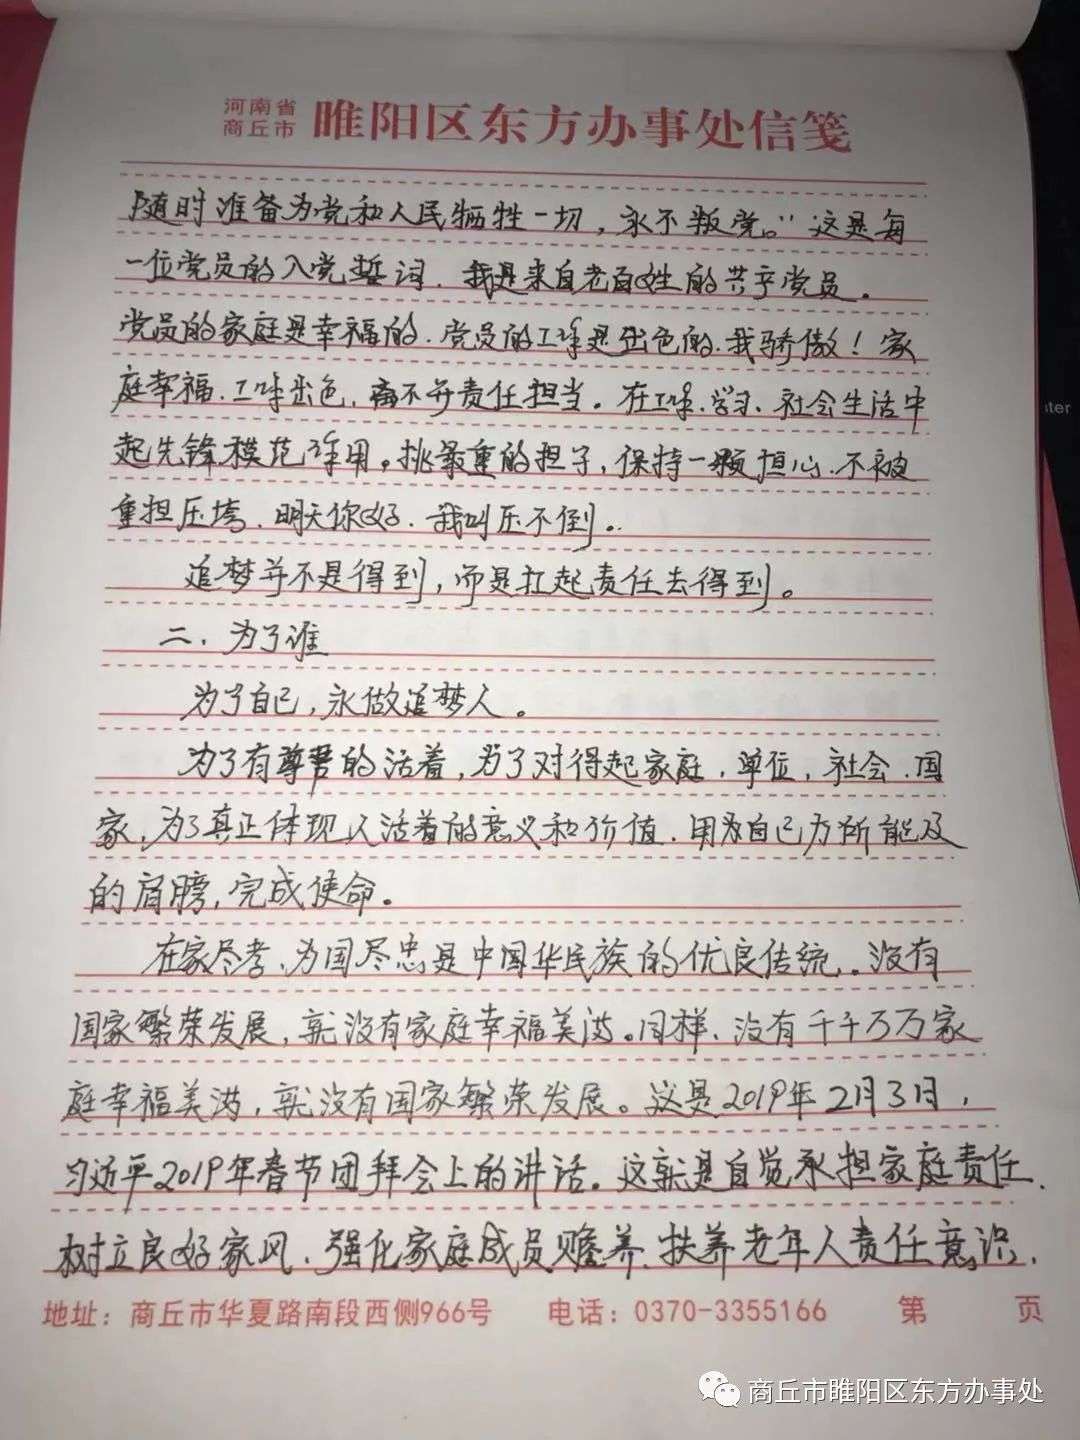 河南省
商丘市
睢阳区东方办事处信笺
随时准备为党和人民牺牲一切，永不叛党。”这是每
一位党员的入党誓词．我是来自老百姓的共产党员。
党员的家庭是幸福的．党员的工作是出色的．我骄傲！家
庭幸福．工作出色，离不开责任担当。在工作．学习．社会生活中
起先锋模范作用。挑最重的担子，保持一颗担心．不被
重担压垮．明天你好．我叫压不倒。
追梦并不是得到，而是扛起责任去得到。
二．为了谁
为了自己，永做追梦人。
为了有尊严的活着，为了对得起家庭，单位，社会．国
家，为了真正体现人活着的意义和价值．用为自己力所能及
的肩膀，完成使命。
在家尽孝、为国尽忠是中国华民族的优良传统。没有
国家繁荣发展，就没有家庭幸福美满。同样、没有千千万万家
庭幸福美满，就没有国家繁荣发展。这是2019年2月3日，
习近平2019年春节团拜会上的讲话。这就是自觉承担家庭责任．
树立良好家风．强化家庭成员赡养．扶养老年人责任意识．
地址：商丘市华夏路南段西侧966号 电话：0370-3355166 第 页
商丘市睢阳区东方办事处